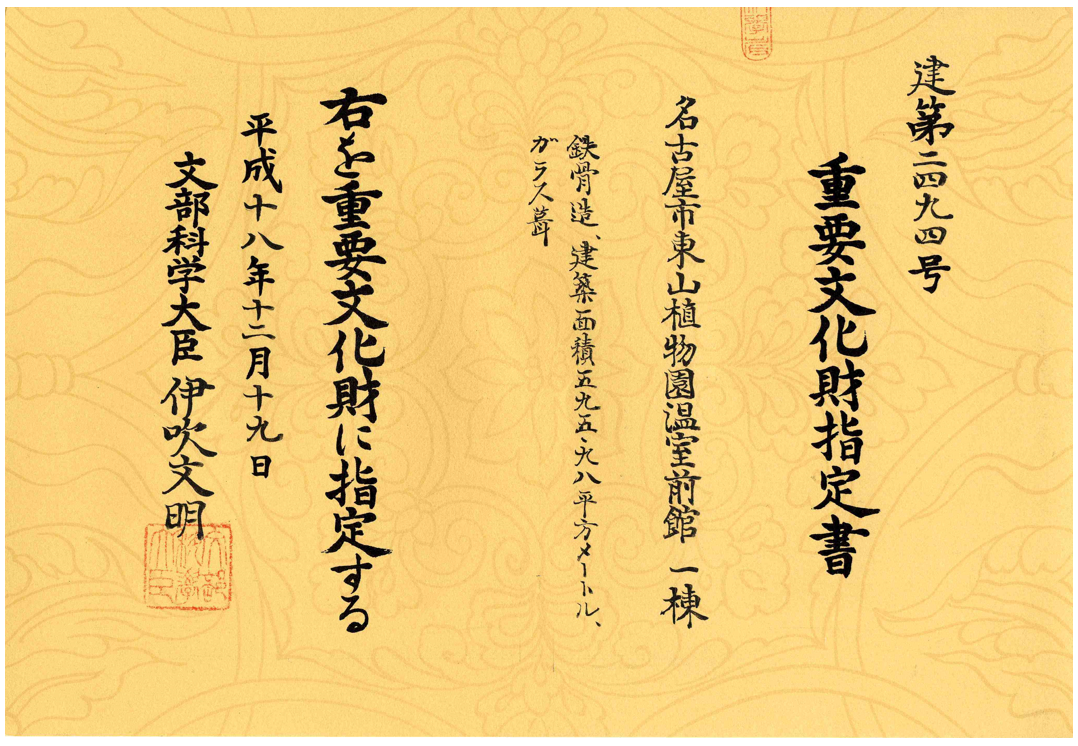 建第二四九四号
重要文化財指定書
名古屋市東山植物園温室前館 一棟
鉄骨造、建築面積五九五・九八平方メートル、
ガラス葺
右を重要文化財に指定する
平成十八年十二月十九日
文部科学大臣 伊吹文明